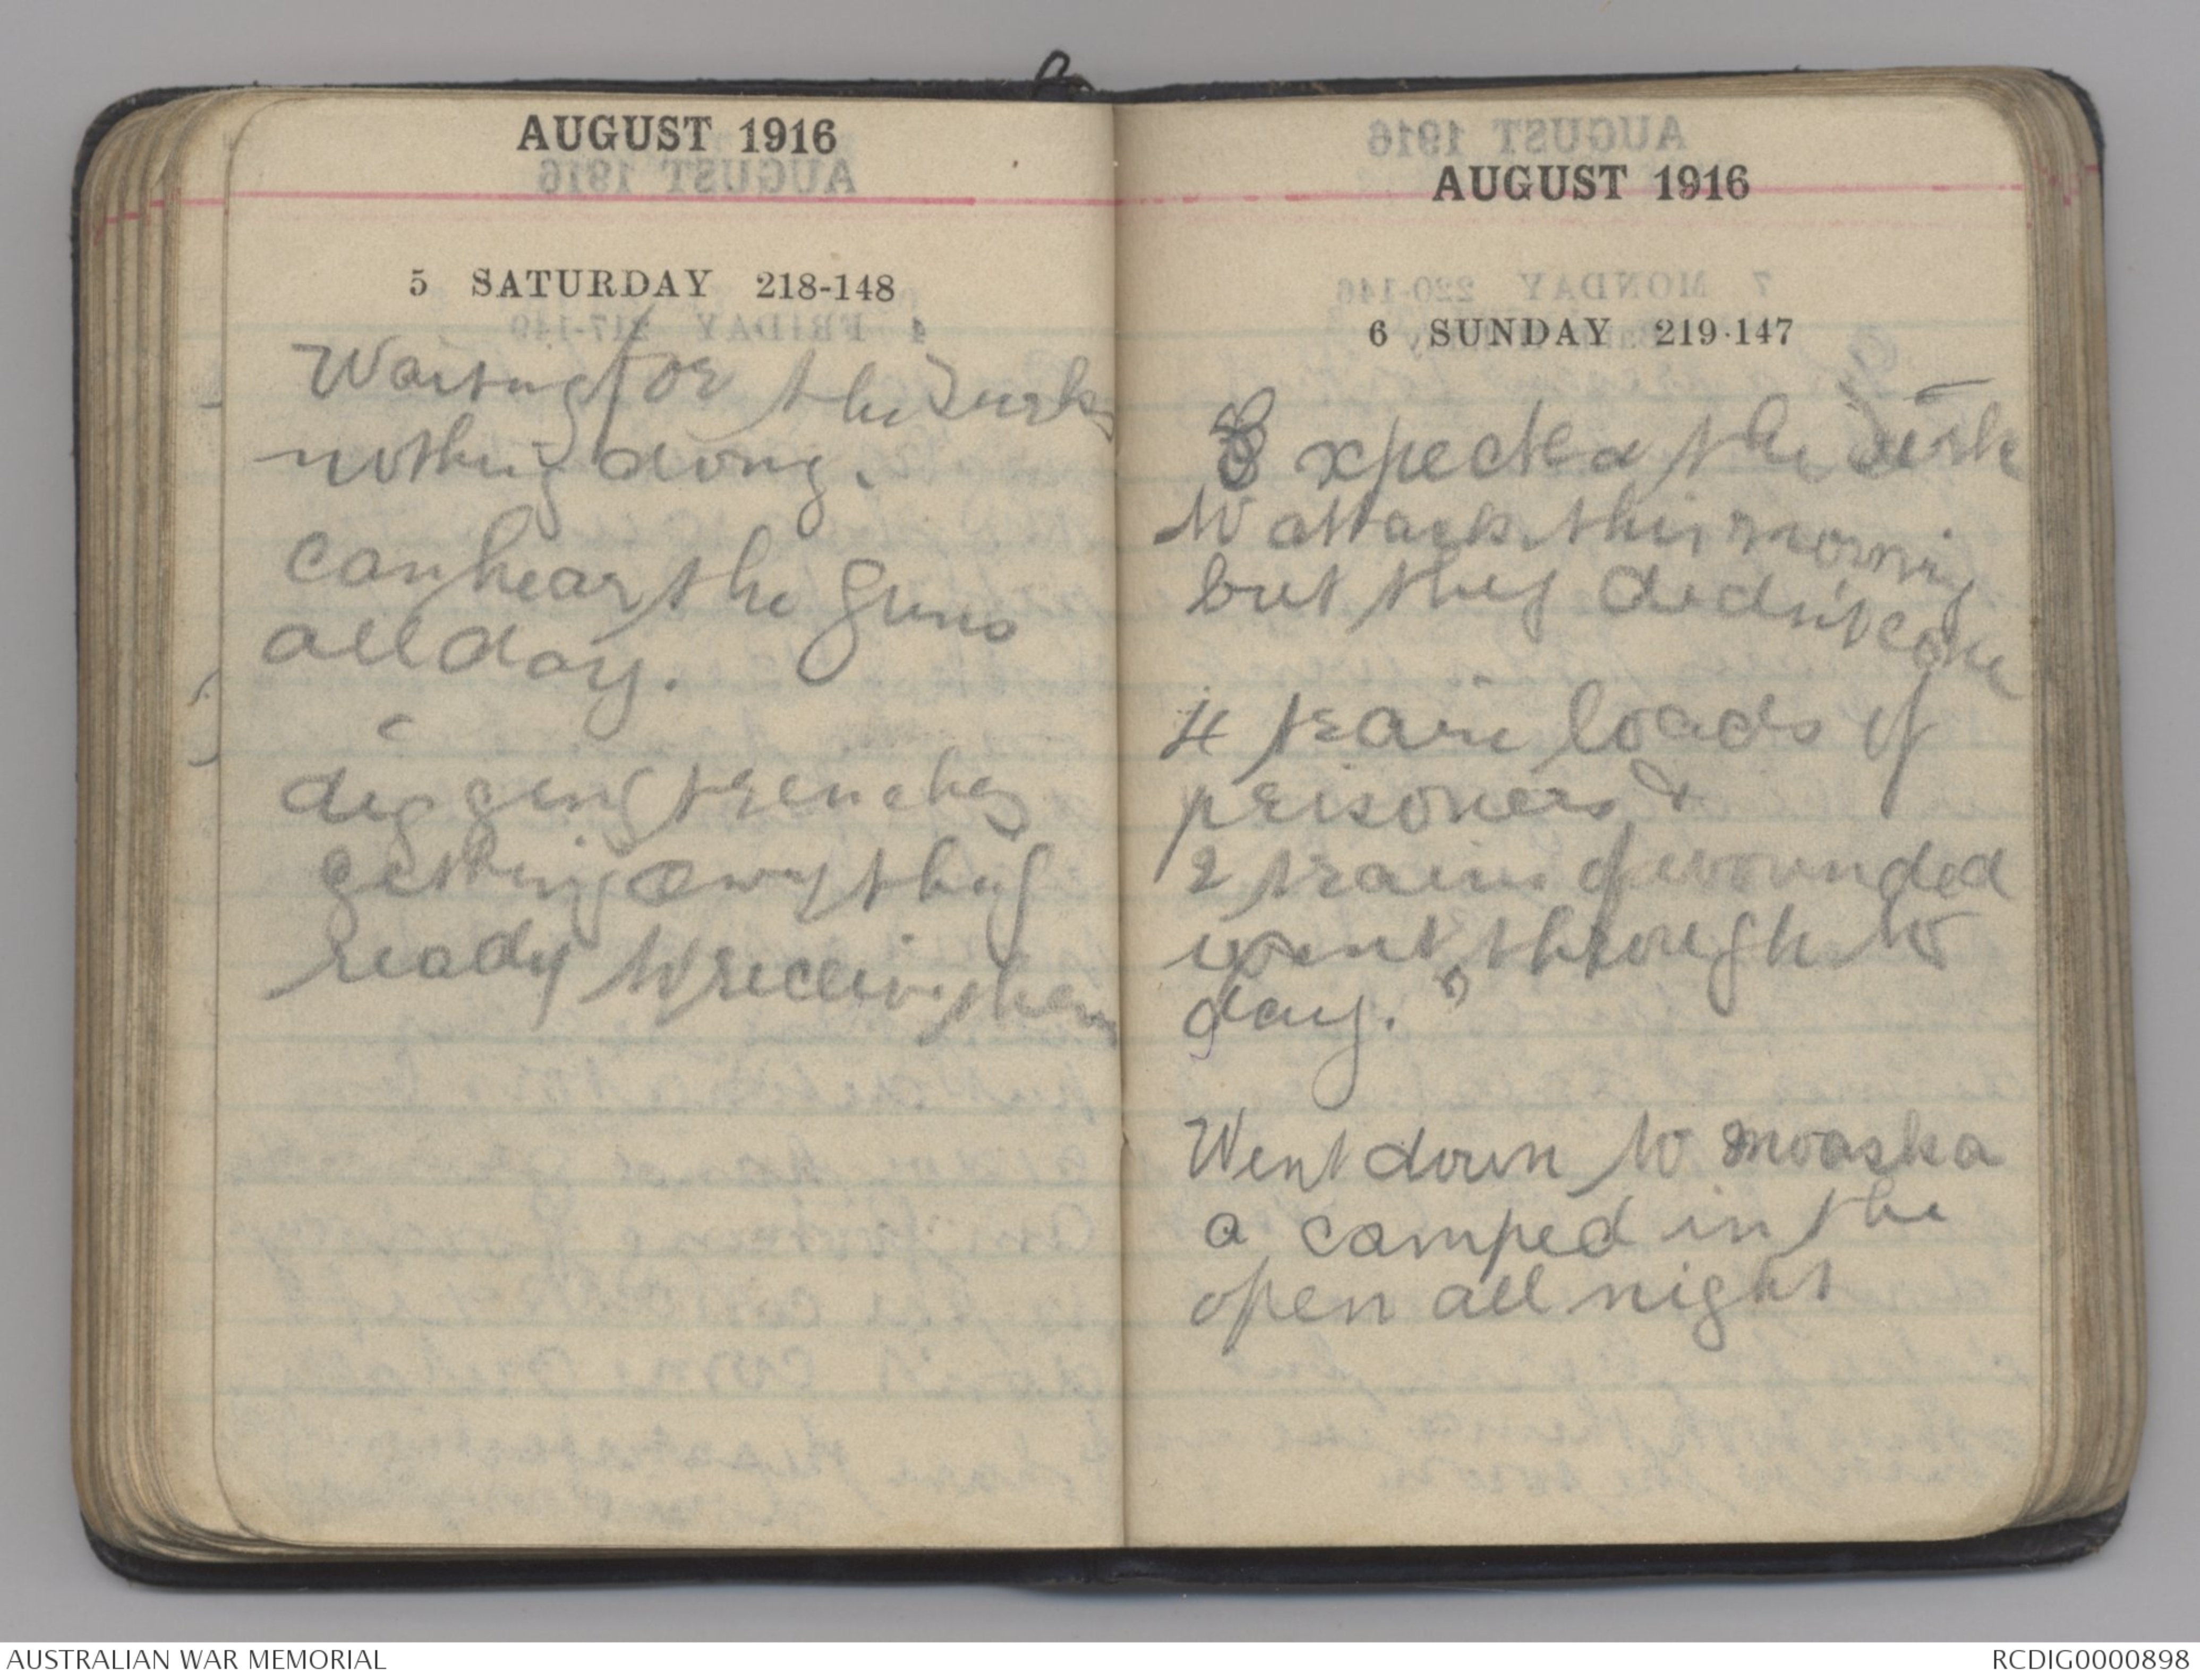 AUGUST 1916
5 SATURDAY 218-148
Waiting for the Turks
nothing doing.
can hear the guns
all day.
digging trenches
getting everything
ready to receive them
AUGUST 1916
6 SUNDAY 219-147
Expected the Turk
to attack this morning
but they didn't come
4 train loads of
prisoners &
2 trains of wounded
went through to
day.
Went down to moaska
a camped in the
open all night
AUSTRALIAN WAR MEMORIAL
RCDIG0000898